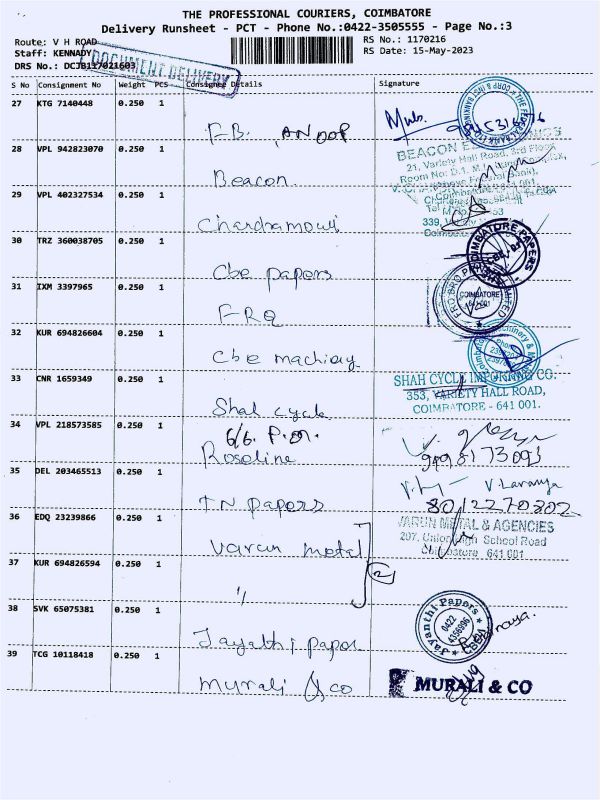 THE PROFESSIONAL COURIERS, COIMBATORE
Delivery Runsheet - PCT - Phone No.:0422-3505555 - Page No.:3
Route: V H ROAD RS No.: 1170216
Staff: KENNADY RS Date: 15-May-2023
DRS No.: DCJB117021603
DOCUMENT DELIVERY
S No Consignment No Weight PCS Consignee Details Signature
27 KTG 7140448 0.250 1
F.B. ANOOP
28 VPL 942823070 0.250 1
BEACON
21, Variety Hall Road, 3rd Floor
Beacon
29 VPL 402327534 0.250 1
Chandramouli
30 TRZ 360038705 0.250 1
COIMBATORE PAPERS
Cbe papers
31 IXM 3397965 0.250 1
COIMBATORE
FRQ
32 KUR 694826604 0.250 1
Cbe machinary
33 CNR 1659349 0.250 1
SHAH CYCLE IMPORTING CO.
353, VARIETY HALL ROAD,
COIMBATORE - 641 001.
Shah cycle
34 VPL 218573585 0.250 1
6/6. P.M.
Roseline
35 DEL 203465513 0.250 1
V. Laranya
8012270802
TN papers
36 EDQ 23239866 0.250 1
VARUN METAL & AGENCIES
207, Union High School Road
Coimbatore 641 001
Varun metal
37 KUR 694826594 0.250 1
2
"
38 SVK 65075381 0.250 1
Jayanthi Papers
0422
4356996
Jayathi papor
39 TCG 10118418 0.250 1
Murali & co
MURALI & CO